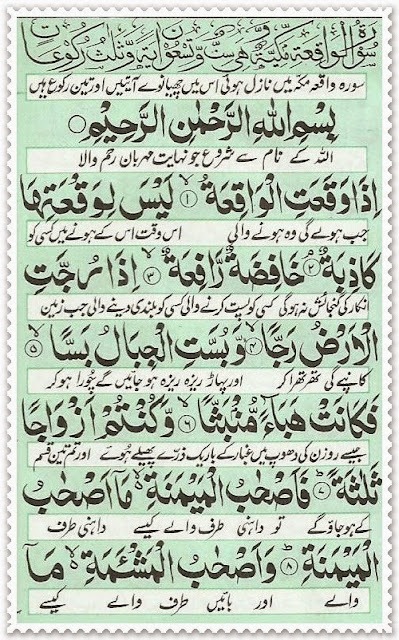 سُوْرَةُ الْوَاقِعَةِ مَكِّيَّةٌ وَّهِيَ سِتٌّ وَّتِسْعُوْنَ اٰيَةً وَّثَلٰثُ رُكُوْعَاتٍ
سورہ واقعہ مکہ میں نازل ہوئی اس میں چھیانوے آیتیں اور تین رکوع ہیں
بِسْمِ اللهِ الرَّحْمٰنِ الرَّحِيْمِ
اللہ کے نام سے شروع جو نہایت مہربان رحم والا
اِذَا وَقَعَتِ الْوَاقِعَةُ ۙ﴿۱﴾ لَيْسَ لِوَقْعَتِهَا
جب ہولے گی وہ ہونے والی اس وقت اس کے ہونے میں کسی کو
كَاذِبَةٌ ۘ﴿۲﴾ خَافِضَةٌ رَّافِعَةٌ ۙ﴿۳﴾ اِذَا رُجَّتِ
انکار کی گنجائش نہ ہوگی کسی کو پست کرنے والی کسی کو بلندی دینے والی جب زمین
الْاَرْضُ رَجًّا ۙ﴿۴﴾ وَّبُسَّتِ الْجِبَالُ بَسًّا ۙ﴿۵﴾
کانپے گی تھرتھرا کر اور پہاڑ ریزہ ریزہ ہو جائیں گے چُورا ہو کر
فَكَانَتْ هَبَآءً مُّنْۢبَثًّا ۙ﴿۶﴾ وَّكُنْتُمْ اَزْوَاجًا
جیسے روزن کی دھوپ میں غبار کے باریک ذرّے پھیلے ہوئے اور تم تین قسم
ثَلٰثَةً ؕ﴿۷﴾ فَاَصْحٰبُ الْمَيْمَنَةِ ۙ مَاۤ اَصْحٰبُ
کے ہو جاؤ گے تو داہنی طرف والے کیسے داہنی طرف
الْمَيْمَنَةِ ؕ﴿۸﴾ وَاَصْحٰبُ الْمَشْـَٔمَةِ ۙ مَاۤ
والے اور بائیں طرف والے کیسے